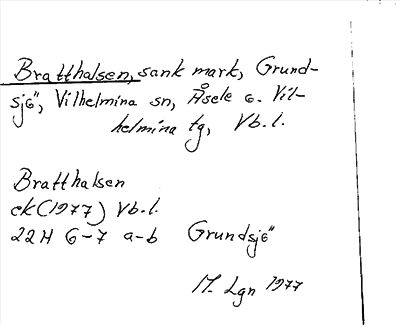 Bratthalsen, sank mark, Grund-
sjö, Vilhelmina sn, Åsele o. Vil-
helmina tg, Vb. l.
Bratthalsen
ek (1977) Vb. l.
22H 6-7 a-b Grundsjö
M. Lgn 1977